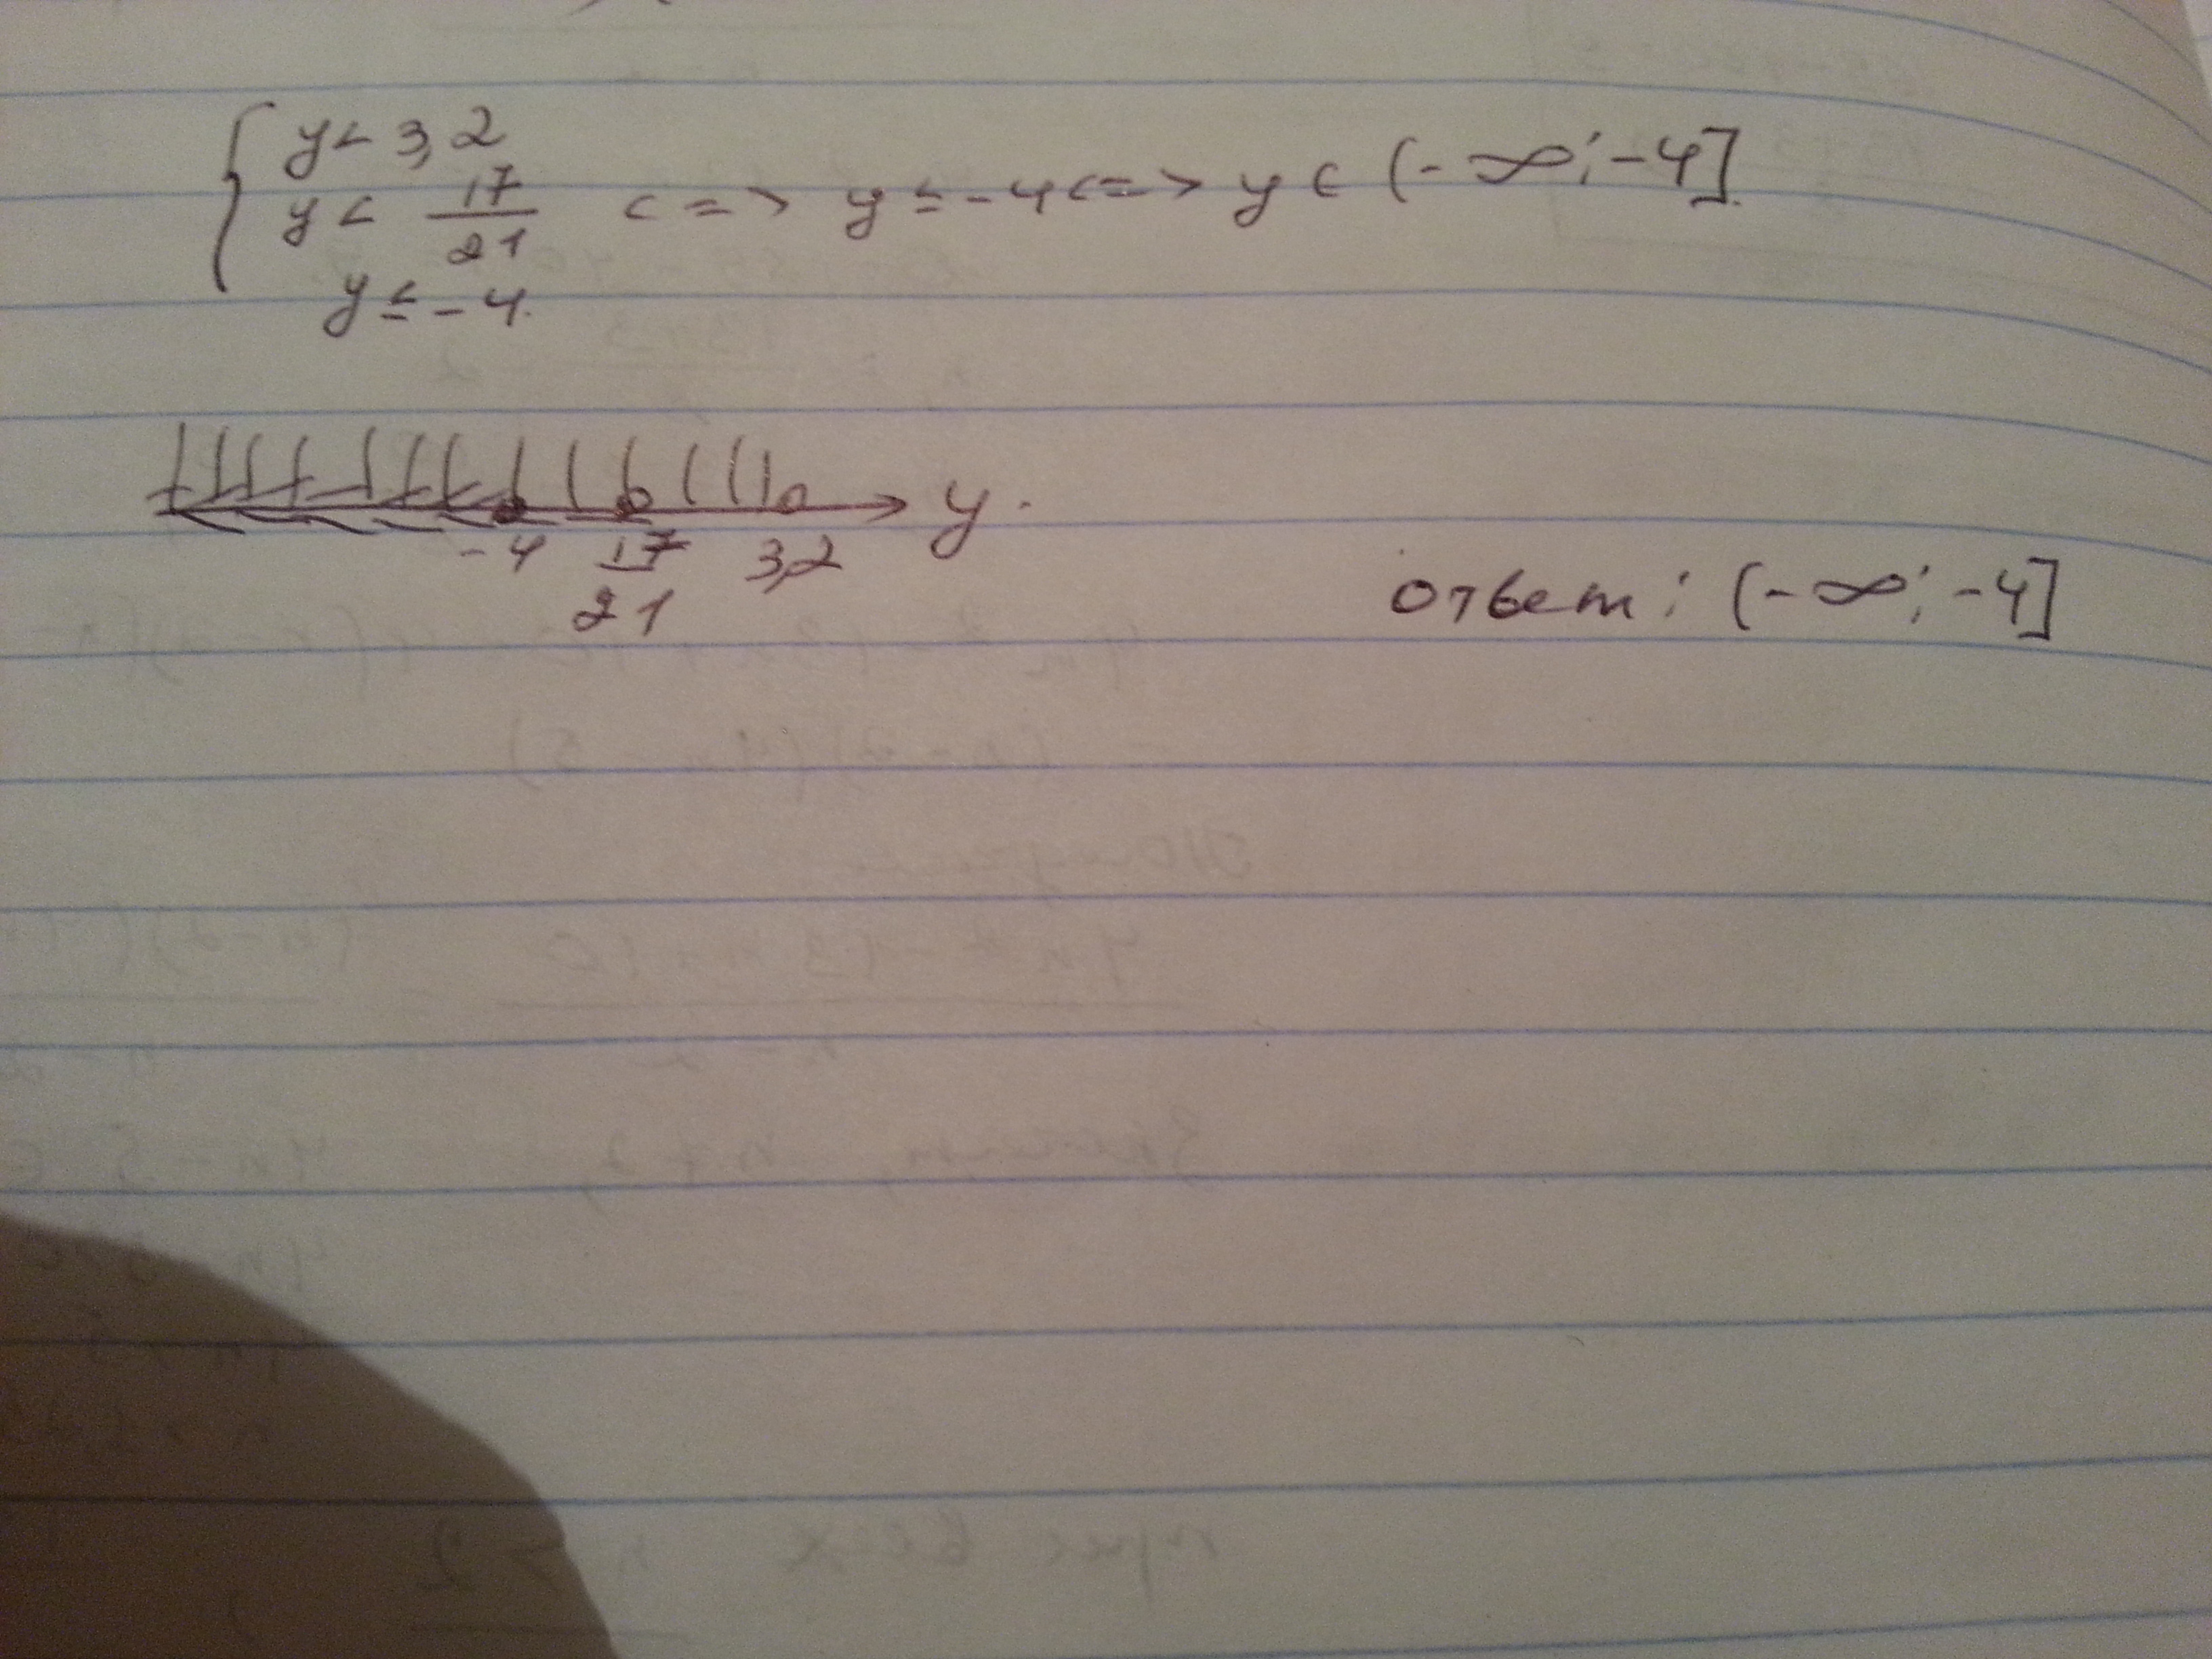 { y < 3,2
y < 17/21 <=> y ≤ -4 <=> y ∈ (-∞; -4].
y ≤ -4.
-4 17/21 3,2 y.
ответ: (-∞; -4]